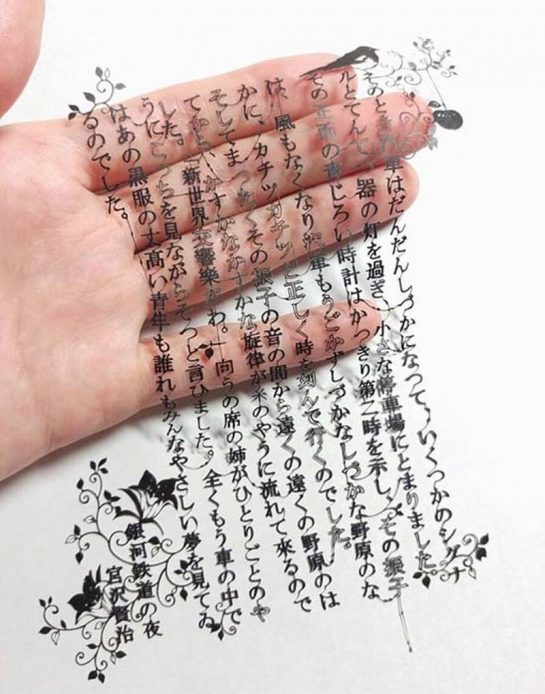 そのとき汽車はだんだんしづかになつて、いくつかのシグナ
ルとてんてつ器の灯を過ぎ、小さな停車場にとまりました。
その正面の青じろい時計はかつきり第二時を示し、その振子
は、風もなくなり汽車もうごかずしづかなしづかな野原のな
かに、カチッカチッと正しく時を刻んで行くのでした。
そしてまつたくその振子の音の間から遠くの遠くの野原のは
てから、かすかなかすかな旋律が糸のやうに流れて來るので
した。「新世界交響樂だわ。」向うの席の姉がひとりごとのや
うにこつちを見ながらそつと言ひました。全くもう車の中で
はあの黒服の丈高い青年も誰れもみんなやさしい夢を見てゐ
るのでした。
銀河鉄道の夜
宮沢賢治